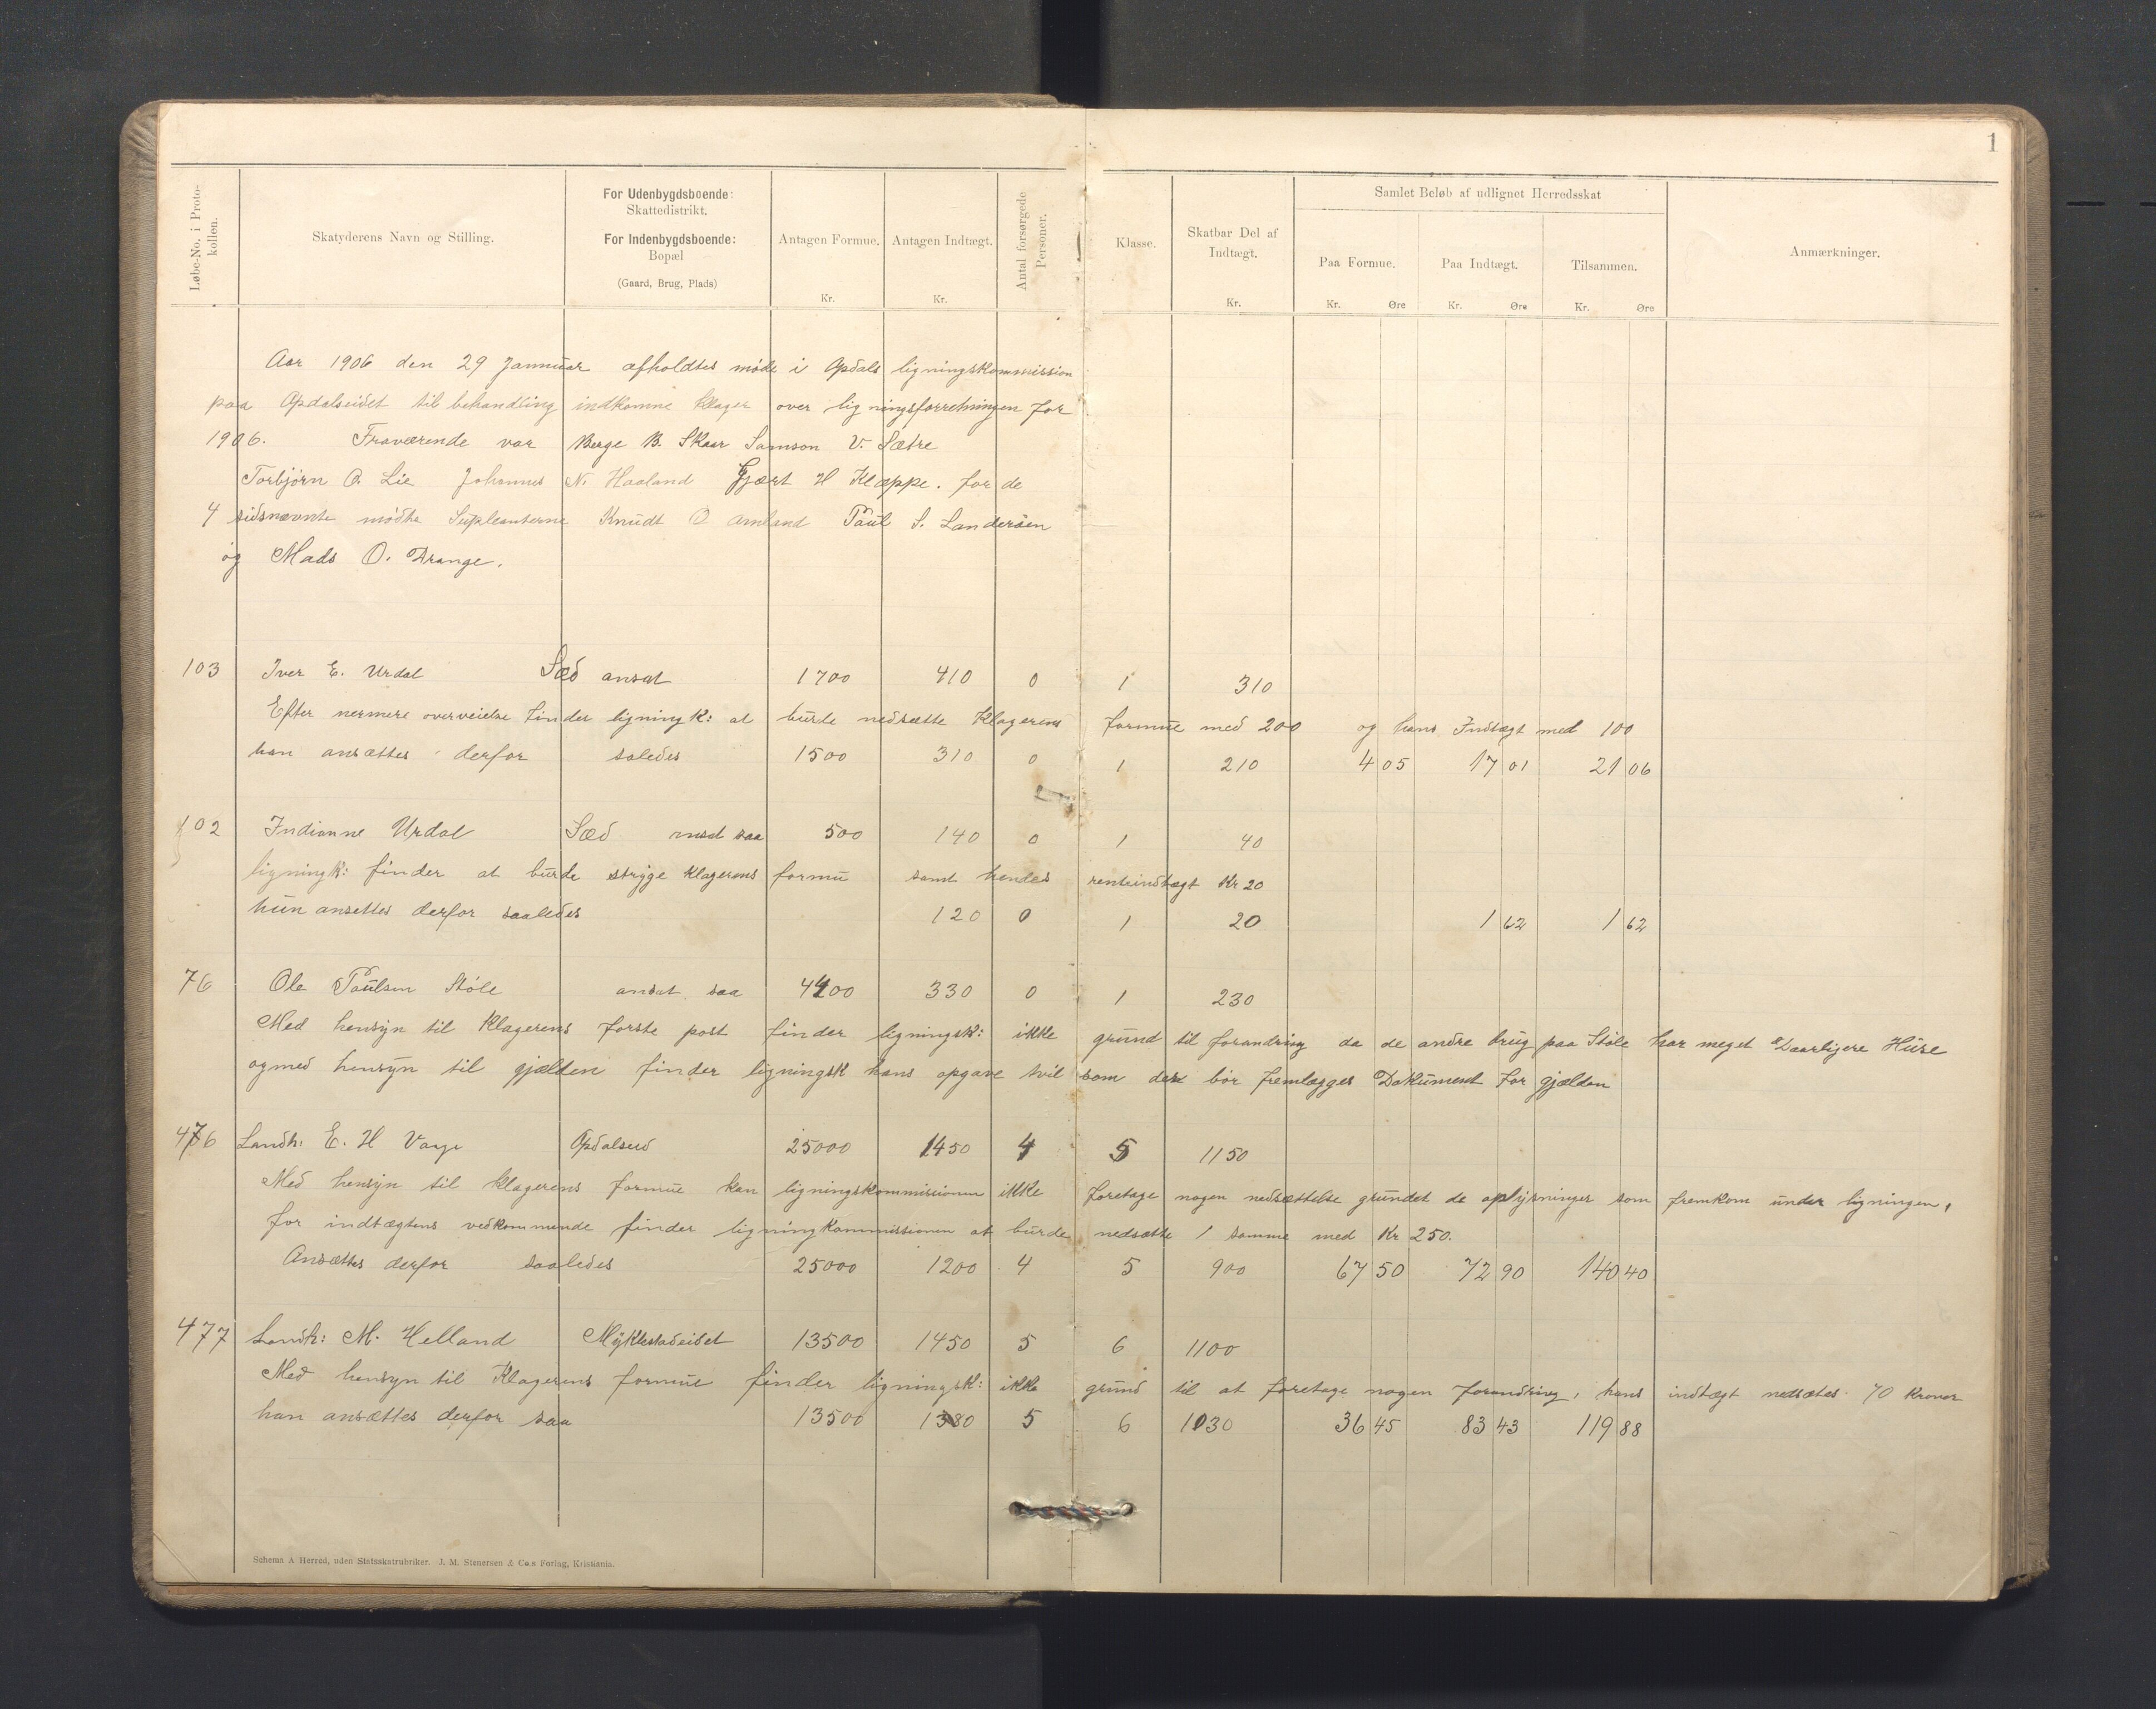 1
Løbe-No. i Protokollen.
Skatyderens Navn og Stilling.
For Udenbygdsboende:
Skattedistrikt.
For Indenbygdsboende:
Bopæl
(Gaard, Brug, Plads)
Antagen Formue.
Kr.
Antagen Indtægt.
Kr.
Antal forsørgede Personer.
Klasse.
Skatbar Del af Indtægt.
Kr.
Samlet Beløb af udlignet Herredsskat
Paa Formue.
Kr. Øre
Paa Indtægt.
Kr. Øre
Tilsammen.
Kr. Øre
Anmærkninger.
Aar 1906 den 29 Jannuar afholdtes møde i Opdals ligningskommission
paa Opdalseidet til behandling indkomne klager over ligningsforretningen for
1906. Fraværende var Berge B. Skaar Samson V. Sætre
Torbjørn O. Lie Johannes N. Haaland Gjært H Kleppe. for de
4 sidsnævnte mødte Supleanterne Knudt O Amland Paul S. Landerøen
og Mads O. Drange.
103 Iver E. Urdal Sæd ansat 1700 410 0 1 310
Efter nermere overveielse finder ligningk: at burde nedsætte Klagerens formue med 200 og hans Indtægt med 100
han ansættes derfor saledes 1500 310 0 1 210 4 05 17 01 21 06
102 Indianne Urdal Sæd ansat saa 500 140 0 1 40
ligningk: finder at burde stryge klagerens formu samt hendes renteindtægt Kr 20
hun ansettes derfor saaledes 120 0 1 20 1 62 1 62
76 Ole Paulsen Støle ansat saa 4400 330 0 1 230
Med hensyn til Klagerens første post finder ligningsk: ikke grund til forandring da de andre brug paa Støle har meget Daarligere Huse
og med hensyn til gjælden finder ligningsk hans opgave tvilsom der bør fremlægges Dokument for gjælden
476 Landh: E. H Vaage Opdalseid 25000 1450 4 5 1150
Med hensyn til klagerens formue kan ligningskommissionen ikke foretage nogen nedsættelse grundet de oplysninger som fremkom under ligningen,
for indtægtens vedkommende finder ligningkommissionen at burde nedsætte samme med Kr 250.
Ansættes derfor saaledes 25000 1200 4 5 900 67 50 72 90 140 40
477 Landh: M. Helland Myklestadeidet 13500 1450 5 6 1100
Med hensyn til Klagerens formue finder ligningsk: ikke grund til at foretage nogen forandring, hans indtægt nedsætes 70 kroner
han ansættes derfor saa 13500 1380 5 6 1030 36 45 83 43 119 88
Schema A Herred, uden Statsskatrubriker. J. M. Stenersen & Co.s Forlag, Kristiania.